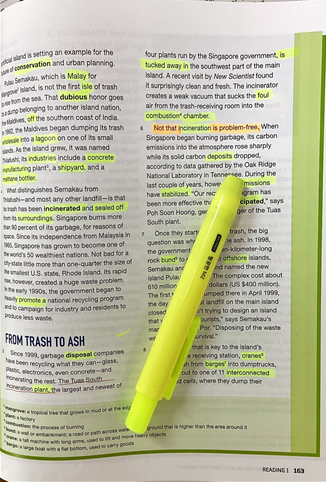 artificial island is setting an example for the
future of conservation and urban planning.
Pulau Semakau, which is Malay for
Mangrove¹ Island, is not the first isle of trash
to rise from the sea. That dubious honor goes
to a dump belonging to another island nation,
the Maldives, off the southern coast of India.
In 1992, the Maldives began dumping its trash
wholesale into a lagoon on one of its small
islands. As the island grew, it was named
Thilafushi; its industries include a concrete
manufacturing plant², a shipyard, and a
methane bottler.
What distinguishes Semakau from
Thilafushi—and most any other landfill—is that
its trash has been incinerated and sealed off
from its surroundings. Singapore burns more
than 90 percent of its garbage, for reasons of
space. Since its independence from Malaysia in
1965, Singapore has grown to become one of
the world's 50 wealthiest nations. Not bad for a
city-state little more than one-quarter the size of
the smallest U.S. state, Rhode Island. Its rapid
rise, however, created a huge waste problem.
In the early 1990s, the government began to
heavily promote a national recycling program
and to campaign for industry and residents to
produce less waste.
FROM TRASH TO ASH
5 Since 1999, garbage disposal companies
have been recycling what they can—glass,
plastic, electronics, even concrete—and
incinerating the rest. The Tuas South
incineration plant, the largest and newest of
four plants run by the Singapore government, is
tucked away in the southwest part of the main
island. A recent visit by New Scientist found
it surprisingly clean and fresh. The incinerator
creates a weak vacuum that sucks the foul
air from the trash-receiving room into the
combustion³ chamber.
6 Not that incineration is problem-free. When
Singapore began burning garbage, its carbon
emissions into the atmosphere rose sharply
while its solid carbon deposits dropped,
according to data gathered by the Oak Ridge
National Laboratory in Tennessee. During the
last couple of years, however, emissions
have stabilized. "Our recycling program has
been more effective than anticipated," says
Poh Soon Hoong, general manager of the Tuas
South plant.
7 Once they started the trash, the big
question was where
the government
rock bund⁴ offshore islands,
Semakau and
island Pulau The complex cost about
610 million dollars (US $400 million).
The first dumped there in April 1999,
landfill on the main island
closed trying to design an island
tourists," says Semakau's
Por. "Disposing of the waste
is key to the island's
receiving station, cranes⁵
from barges⁶ into dumptrucks,
out to one of 11 interconnected
cells, where they dump their
¹mangrove: a tropical tree that grows in mud or at the edge
²plant: a factory
³combustion: the process of burning
⁴bund: a wall or embankment; a road or path across ground that is higher than the area around it
⁵crane: a tall machine with long arms, used to lift and move heavy objects
⁶barge: a large boat with a flat bottom, used to carry goods
READING 1 163